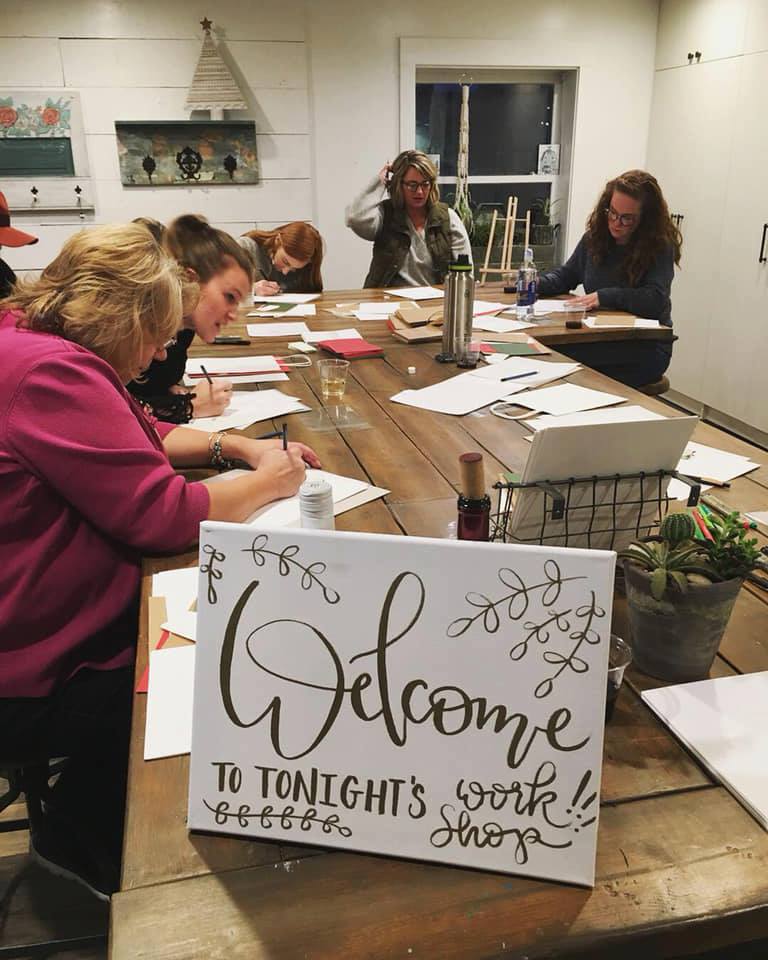 Welcome
TO TONIGHT'S work
shop!!